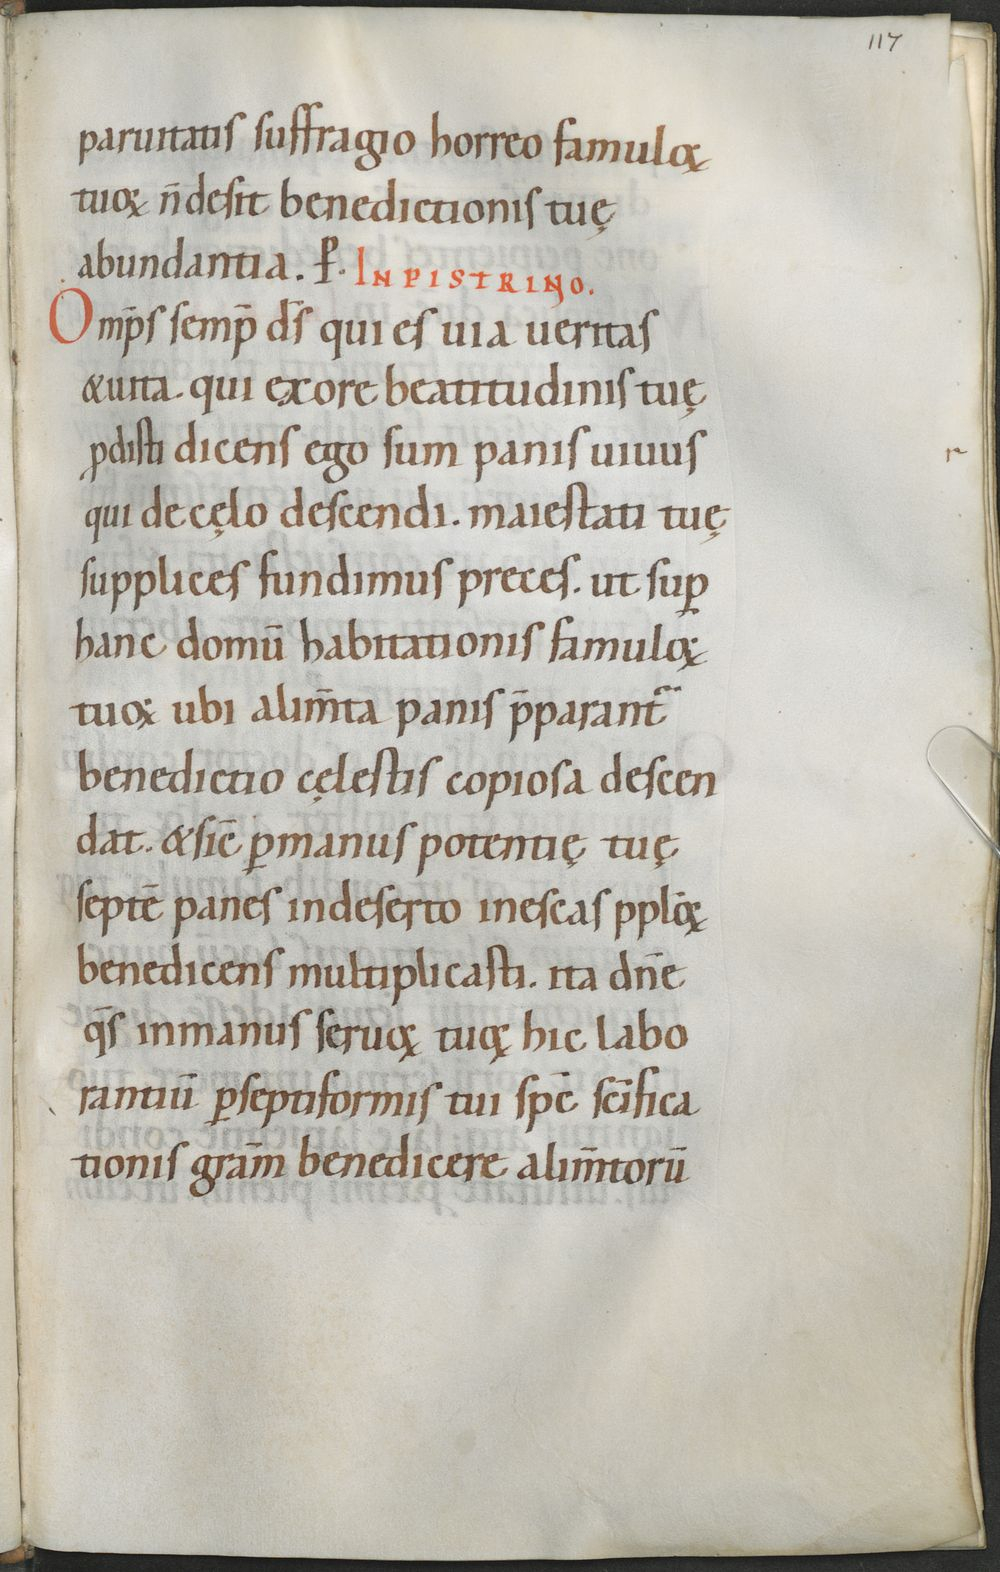 117
paruitatis suffragio horreo famuloꝝ
tuoꝝ n̄ desit benedictionis tuę
abundantia. P̄. IN PISTRINO.
Om̄ps semp̄ d̄s qui es uia ueritas
& uita. qui ex ore beatitudinis tuę
ꝓdisti dicens ego sum panis uiuus
qui de cęlo descendi. maiestati tuę
supplices fundimus preces. ut suꝑ
hanc domū habitationis famuloꝝ
tuoꝝ ubi alim̄ta panis p̄parant᷑
benedictio cęlestis copiosa descen
dat. & sic̄ ꝑ manus potentię tuę
septē panes in deserto in escas pploꝝ
benedicens multiplicasti. ita dn̄e
q̄s in manus seruoꝝ tuoꝝ hic labo
rantiū ꝑ septiformis tui sp̄c sc̄ifica
tionis gr̄am benedicere alim̄torū